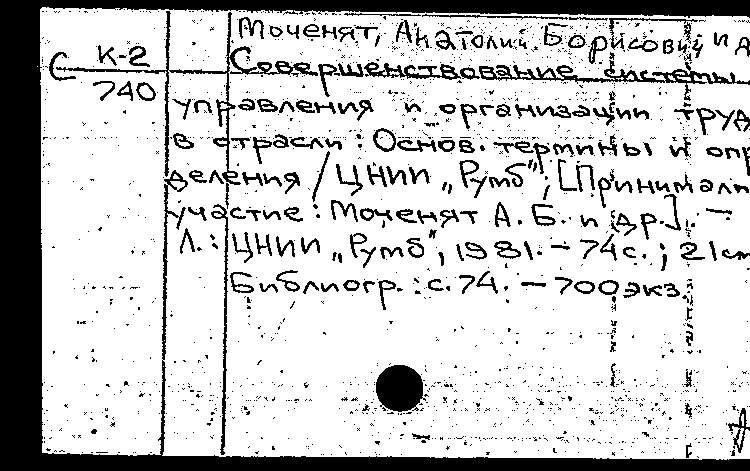 Моченят, Анатолий Борисович и д
С К-2 Совершенствование системы
740 управления и организации труд
в отрасли: Основ. термины и опр
деления / ЦНИИ „Румб"; [Принимали
участие: Моченят А. Б. и др.]. —
Л.: ЦНИИ „Румб", 1981. — 74 с.; 21 см
Библиогр.: с. 74. — 700 экз.